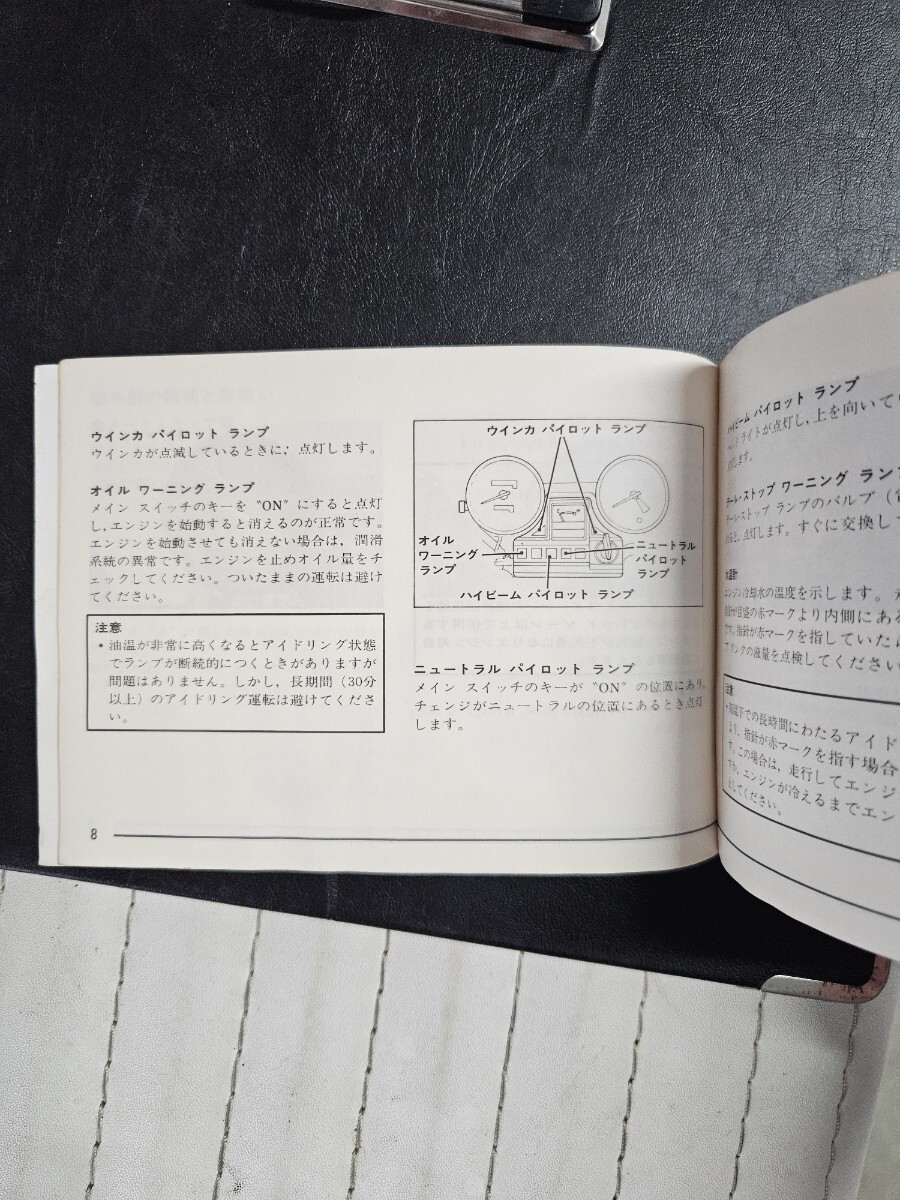 ウインカ パイロット ランプ
ウインカが点滅しているときに，点灯します。
オイル ワーニング ランプ
メイン スイッチのキーを〝ON〟にすると点灯
し，エンジンを始動すると消えるのが正常です。
エンジンを始動させても消えない場合は，潤滑
系統の異常です。エンジンを止めオイル量をチ
ェックしてください。ついたままの運転は避け
てください。
注意
• 油温が非常に高くなるとアイドリング状態
でランプが断続的につくときがありますが
問題はありません。しかし，長期間（30分
以上）のアイドリング運転は避けてくださ
い。
8
ウインカ パイロット ランプ
オイル
ワーニング
ランプ
ニュートラル
パイロット
ランプ
ハイビーム パイロット ランプ
ニュートラル パイロット ランプ
メイン スイッチのキーが〝ON〟の位置にあり，
チェンジがニュートラルの位置にあるとき点灯
します。
ハイビーム パイロット ランプ
ライトが点灯し，上を向いてい
テール・ストップ ワーニング ラン
テール・ストップ ランプのバルブ（
ると，点灯します。すぐに交換して
水温計
エンジン冷却水の温度を示します。
指針が目盛の赤マークより内側にある
です。指針が赤マークを指していたら
タンクの液量を点検してください
注意
下での長時間にわたるアイド
より，指針が赤マークを指す場合
す。この場合は，走行してエンジ
すか，エンジンが冷えるまでエン
してください。